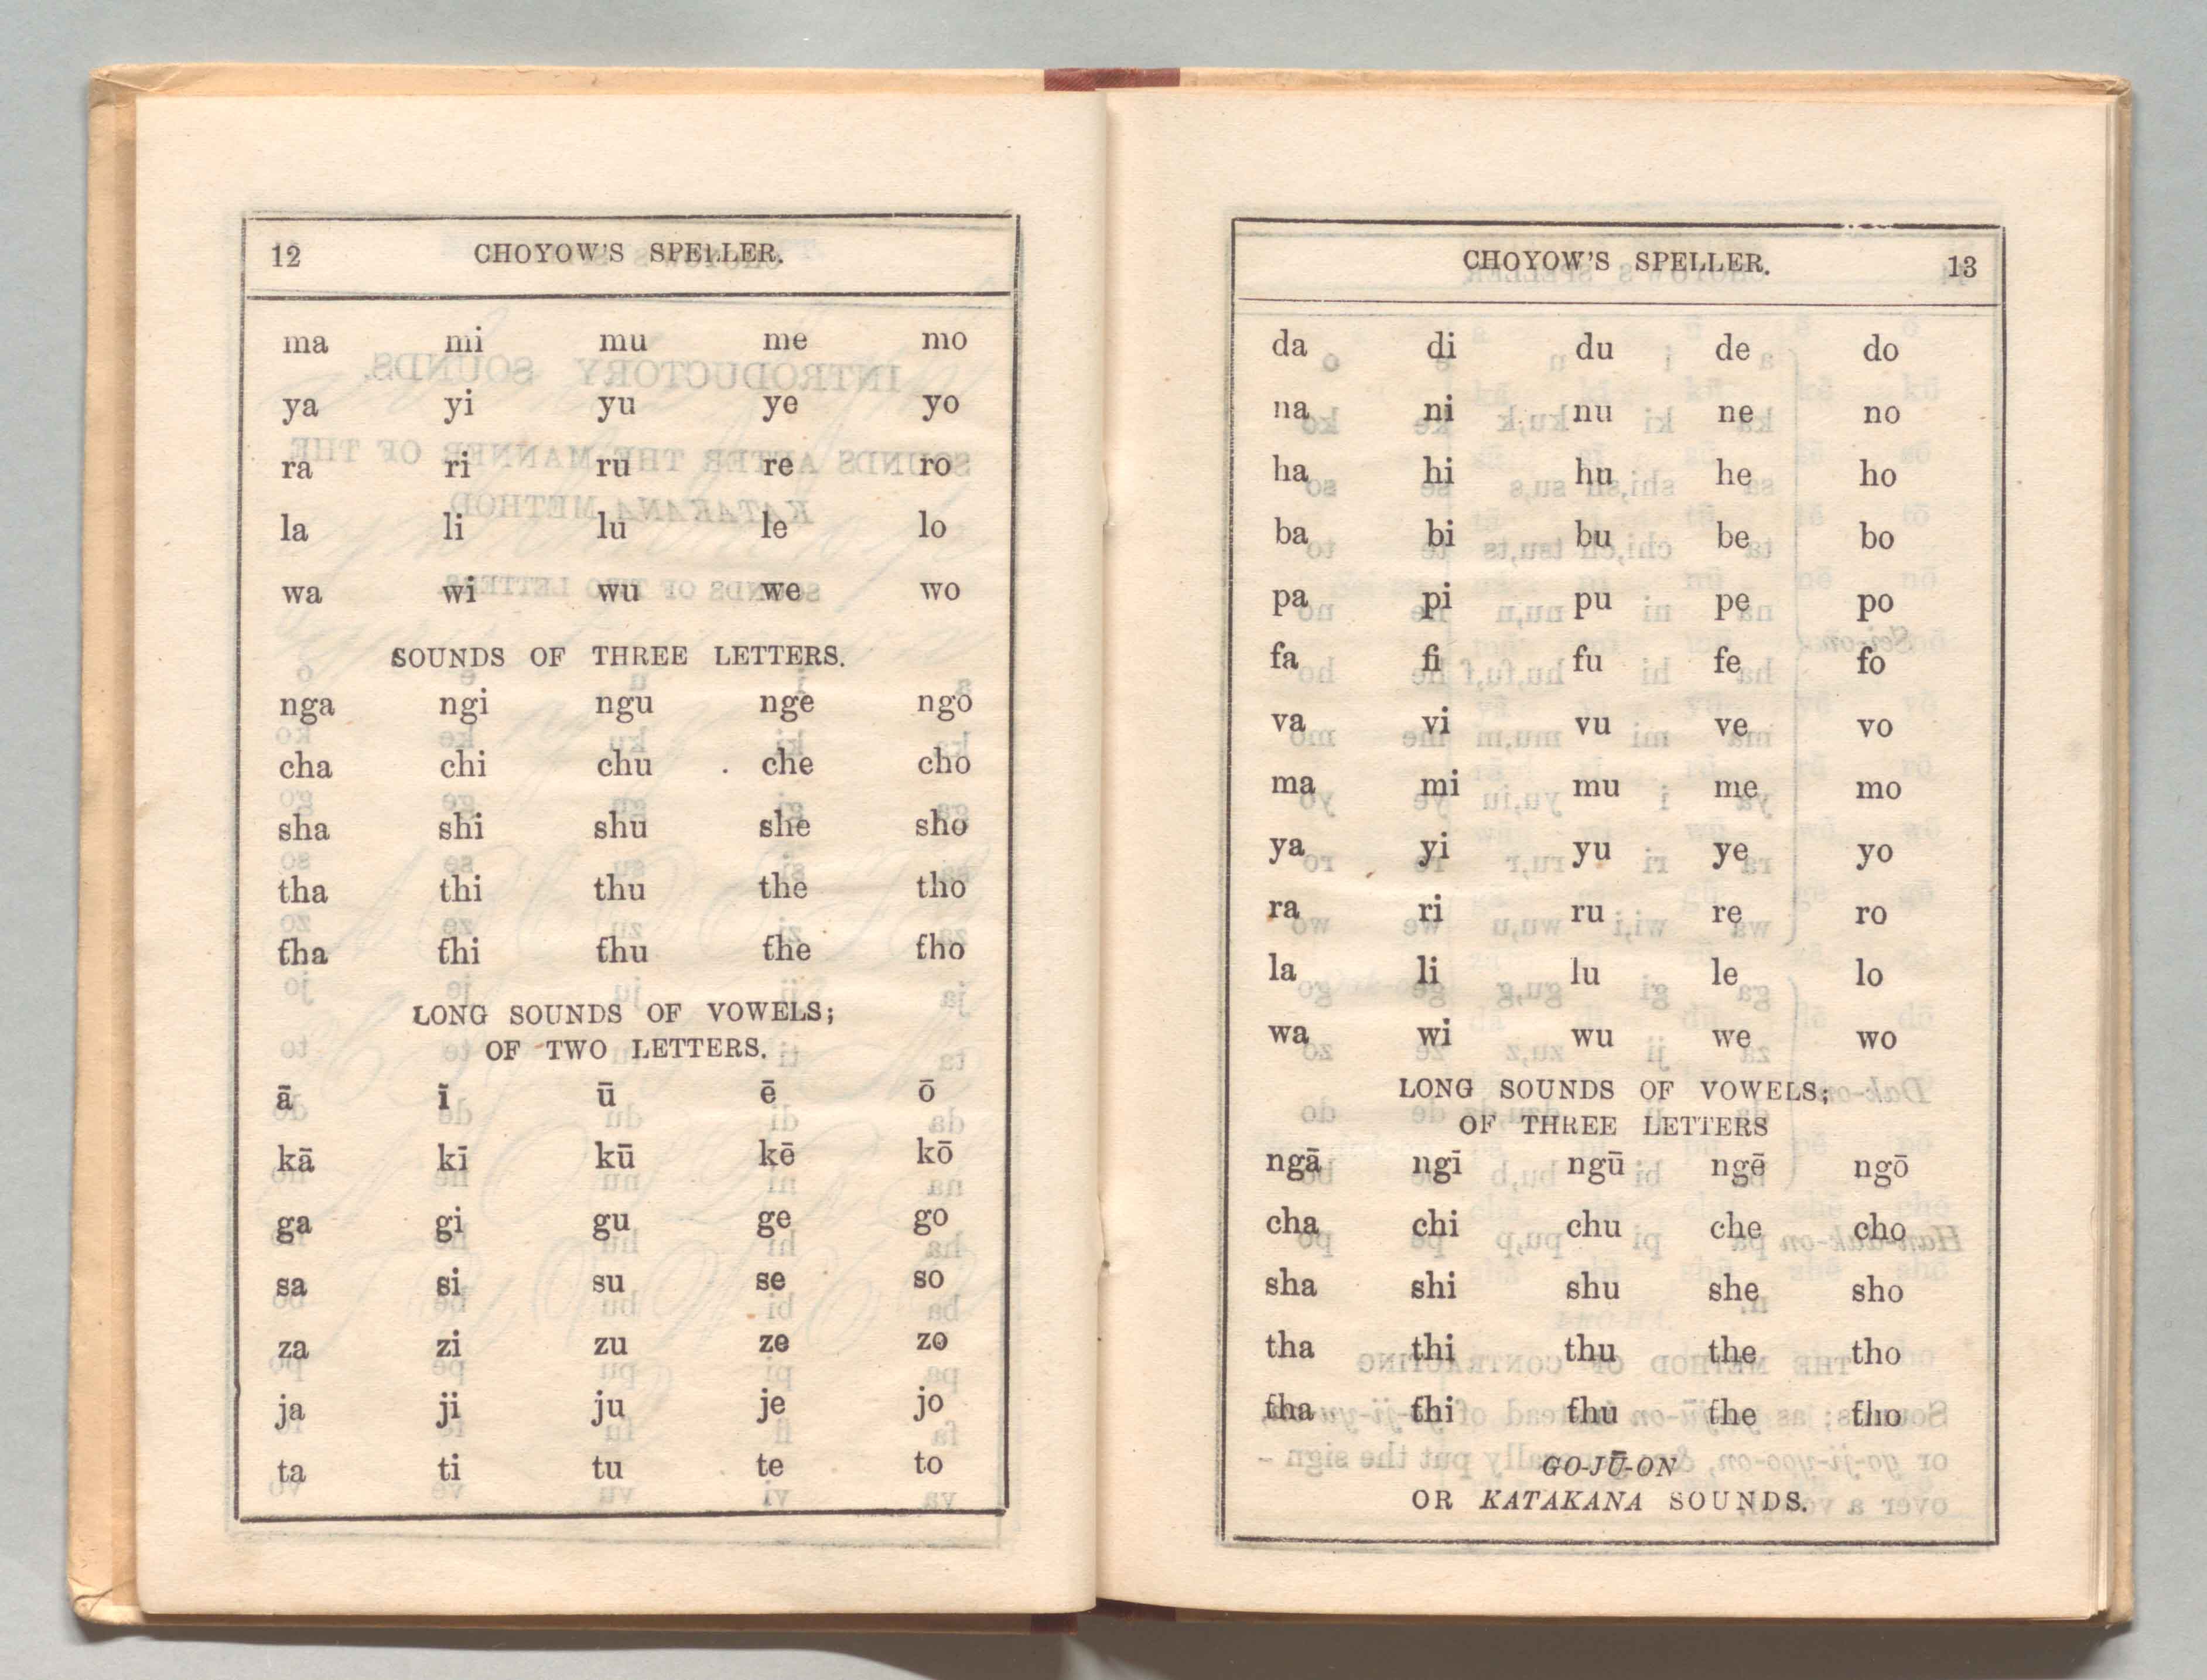 12 CHOYOW'S SPELLER.
ma mi mu me mo
ya yi yu ye yo
ra ri ru re ro
la li lu le lo
wa wi wu we wo
SOUNDS OF THREE LETTERS.
nga ngi ngu nge ngo
cha chi chu che cho
sha shi shu she sho
tha thi thu the tho
tha thi thu the tho
LONG SOUNDS OF VOWELS;
OF TWO LETTERS.
ā ī ū ē ō
kā kī kū kē kō
ga gi gu ge go
sa si su se so
za zi zu ze zo
ja ji ju je jo
ta ti tu te to
CHOYOW'S SPELLER. 13
da di du de do
na ni nu ne no
ha hi hu he ho
ba bi bu be bo
pa pi pu pe po
fa fi fu fe fo
va vi vu ve vo
ma mi mu me mo
ya yi yu ye yo
ra ri ru re ro
la li lu le lo
wa wi wu we wo
LONG SOUNDS OF VOWELS;
OF THREE LETTERS
ngā ngī ngū ngē ngō
cha chi chu che cho
sha shi shu she sho
tha thi thu the tho
tha thi thu the tho
GO-JŪ-ON
OR KATAKANA SOUNDS.